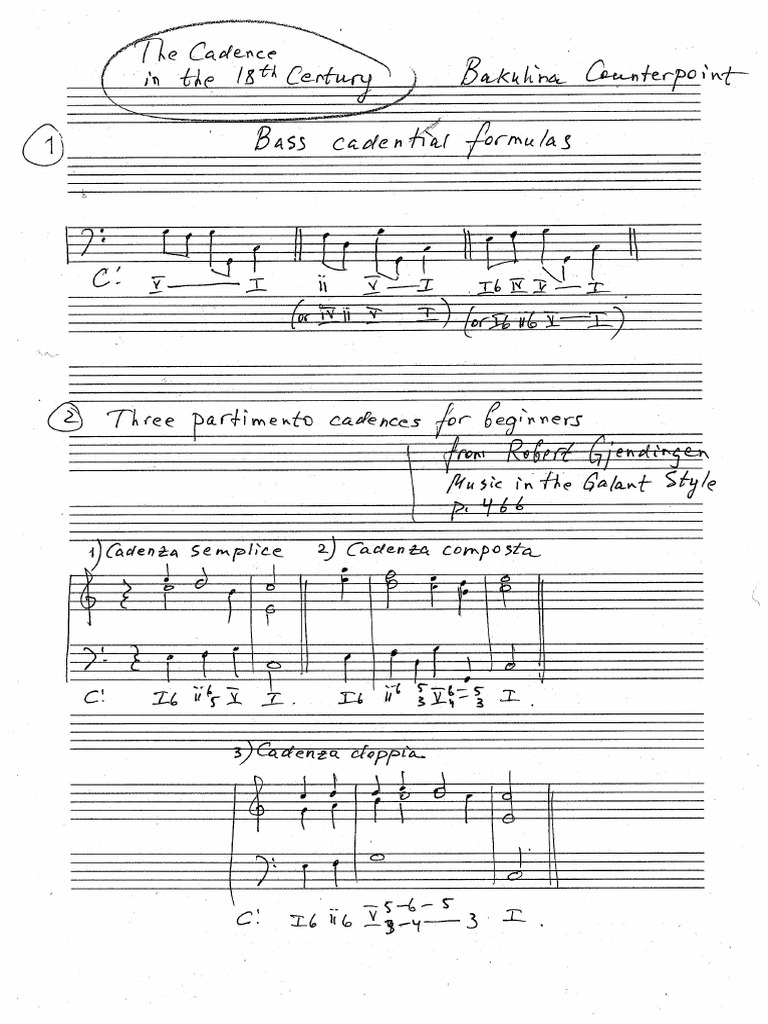 The Cadence
in the 18th Century
Bakulina Counterpoint
1
Bass cadential formulas
C: V — I ii V — I I6 IV V — I
(or IV ii V I) (or I6 ii6 V — I)
2 Three partimento cadences for beginners
from Robert Gjendingen
Music in the Galant Style
p. 466
1) Cadenza semplice 2) Cadenza composta
C: I6 ii6/5 V I. I6 ii6 5/3 V6/4 = 5/3 I.
3) Cadenza doppia
C: I6 ii6 V 5-6-5 I.
3-4—3